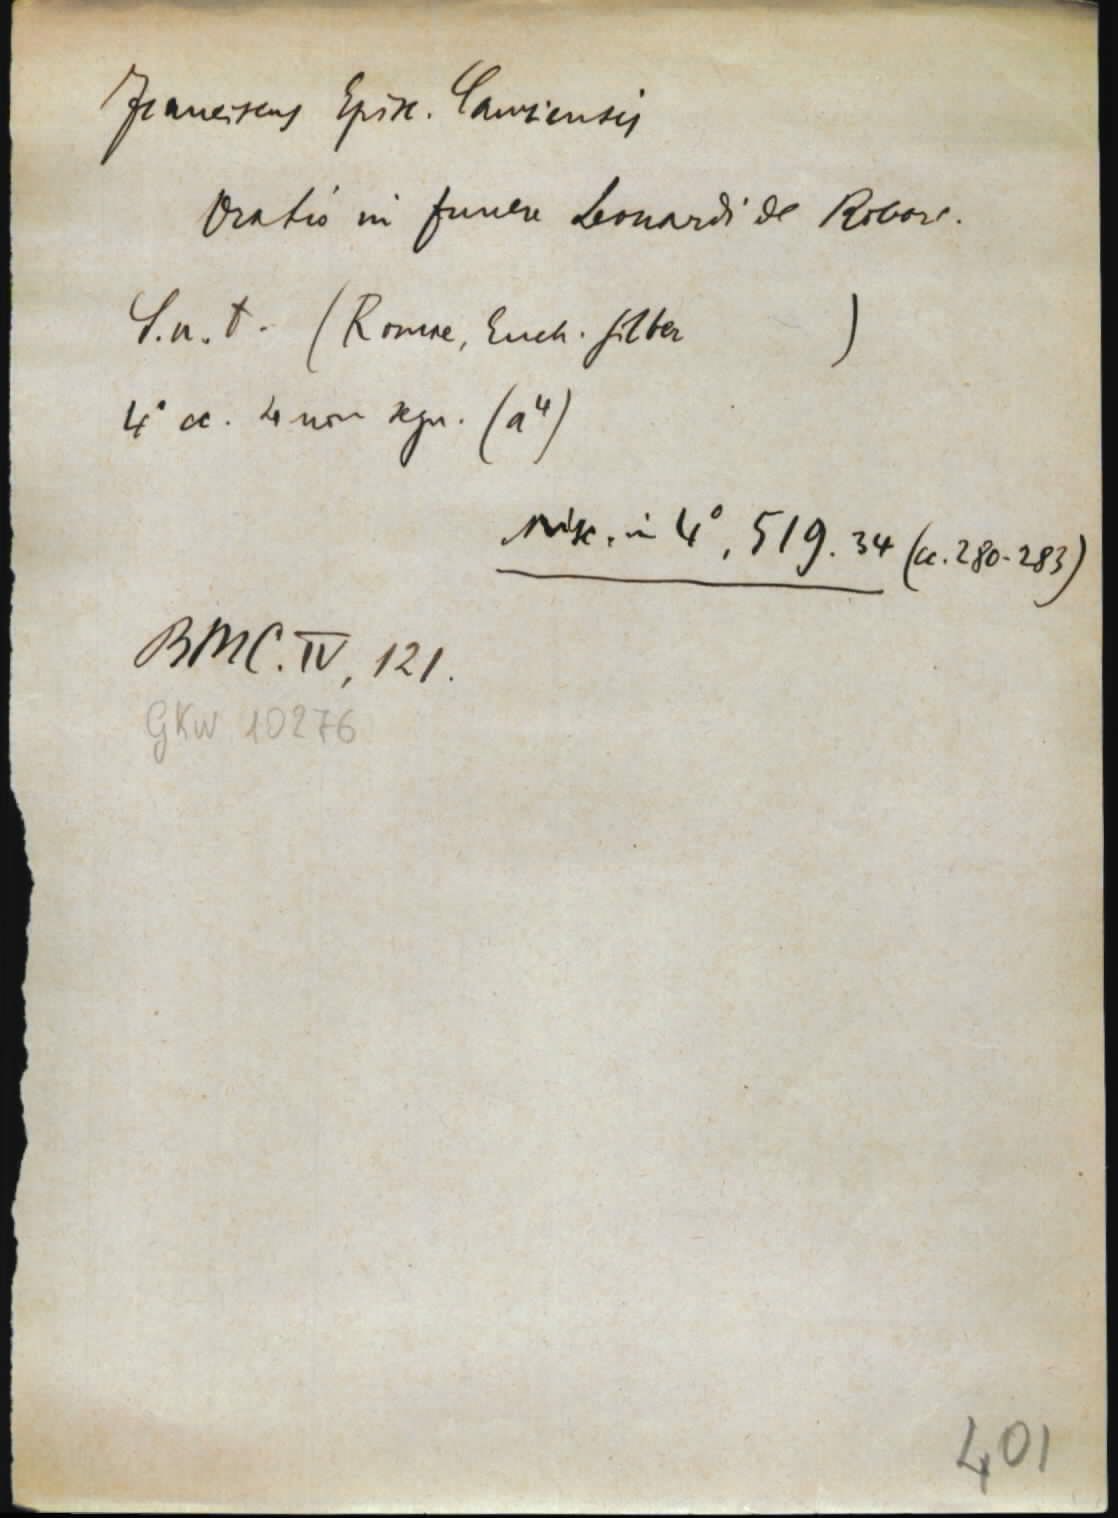 Franciscus Episc. Cauriensis
Oratio in funere Leonardi de Robore.
S.n.t. (Romae, Euch. Silber )
4° cc. 4 non segn. (a⁴)
Misc. in 4°, 519. 34 (cc. 280-283)
BMC. IV, 121.
GKW 10276
401